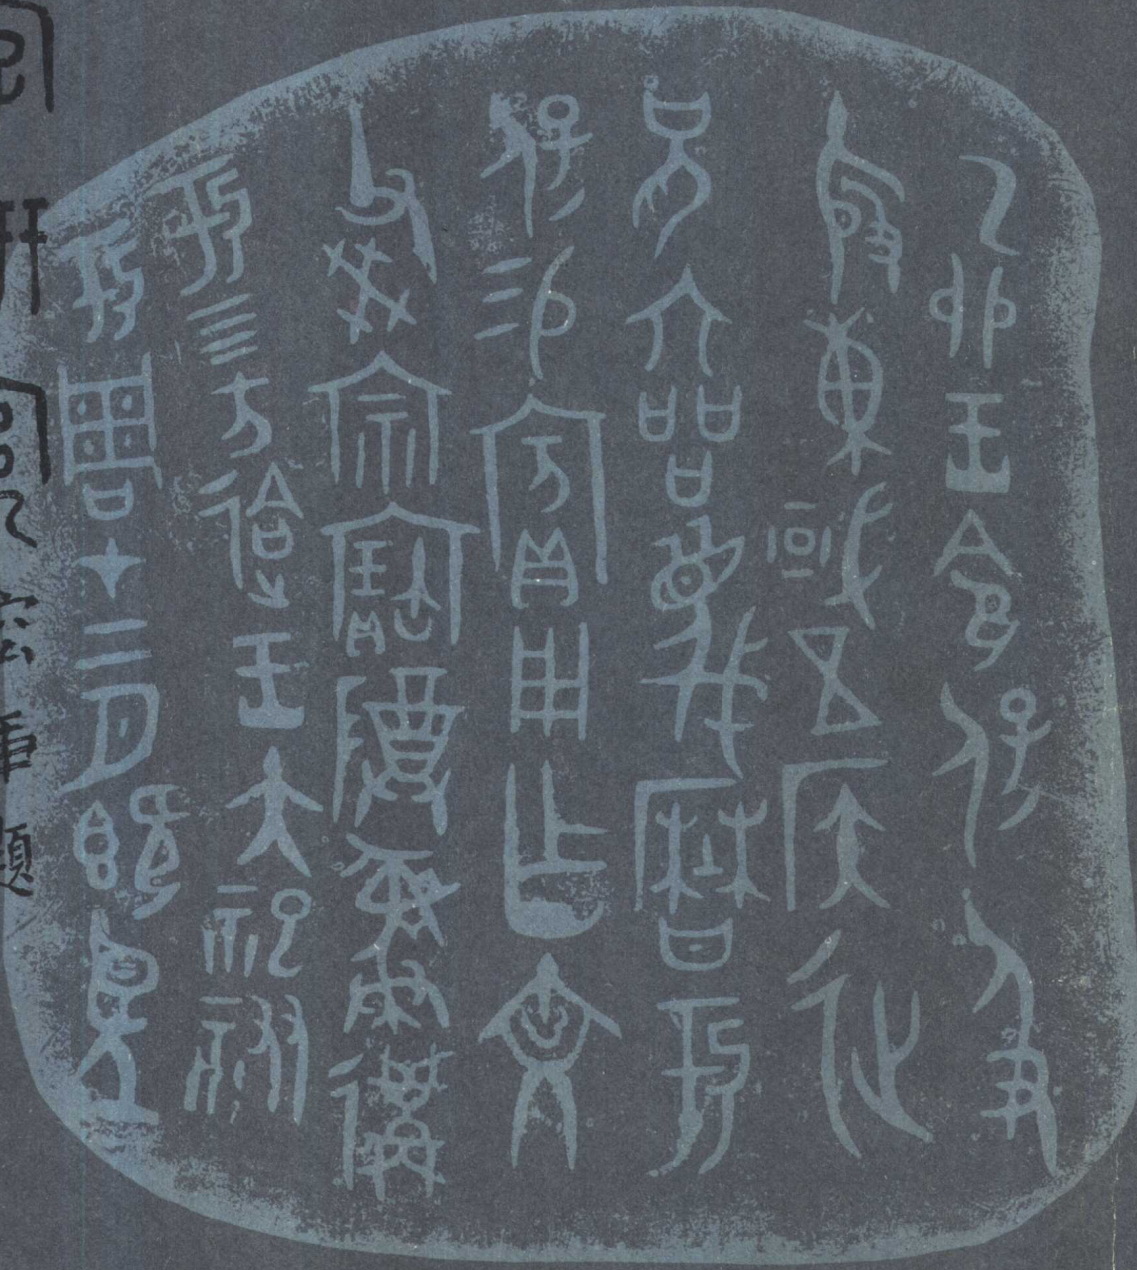 乙卯王令保及
殷東或五侯征
兄六品蔑曆于
保易賓用乍文
父癸宗寶尊彝遘
于四方會王大祀祓
于周才二月既望